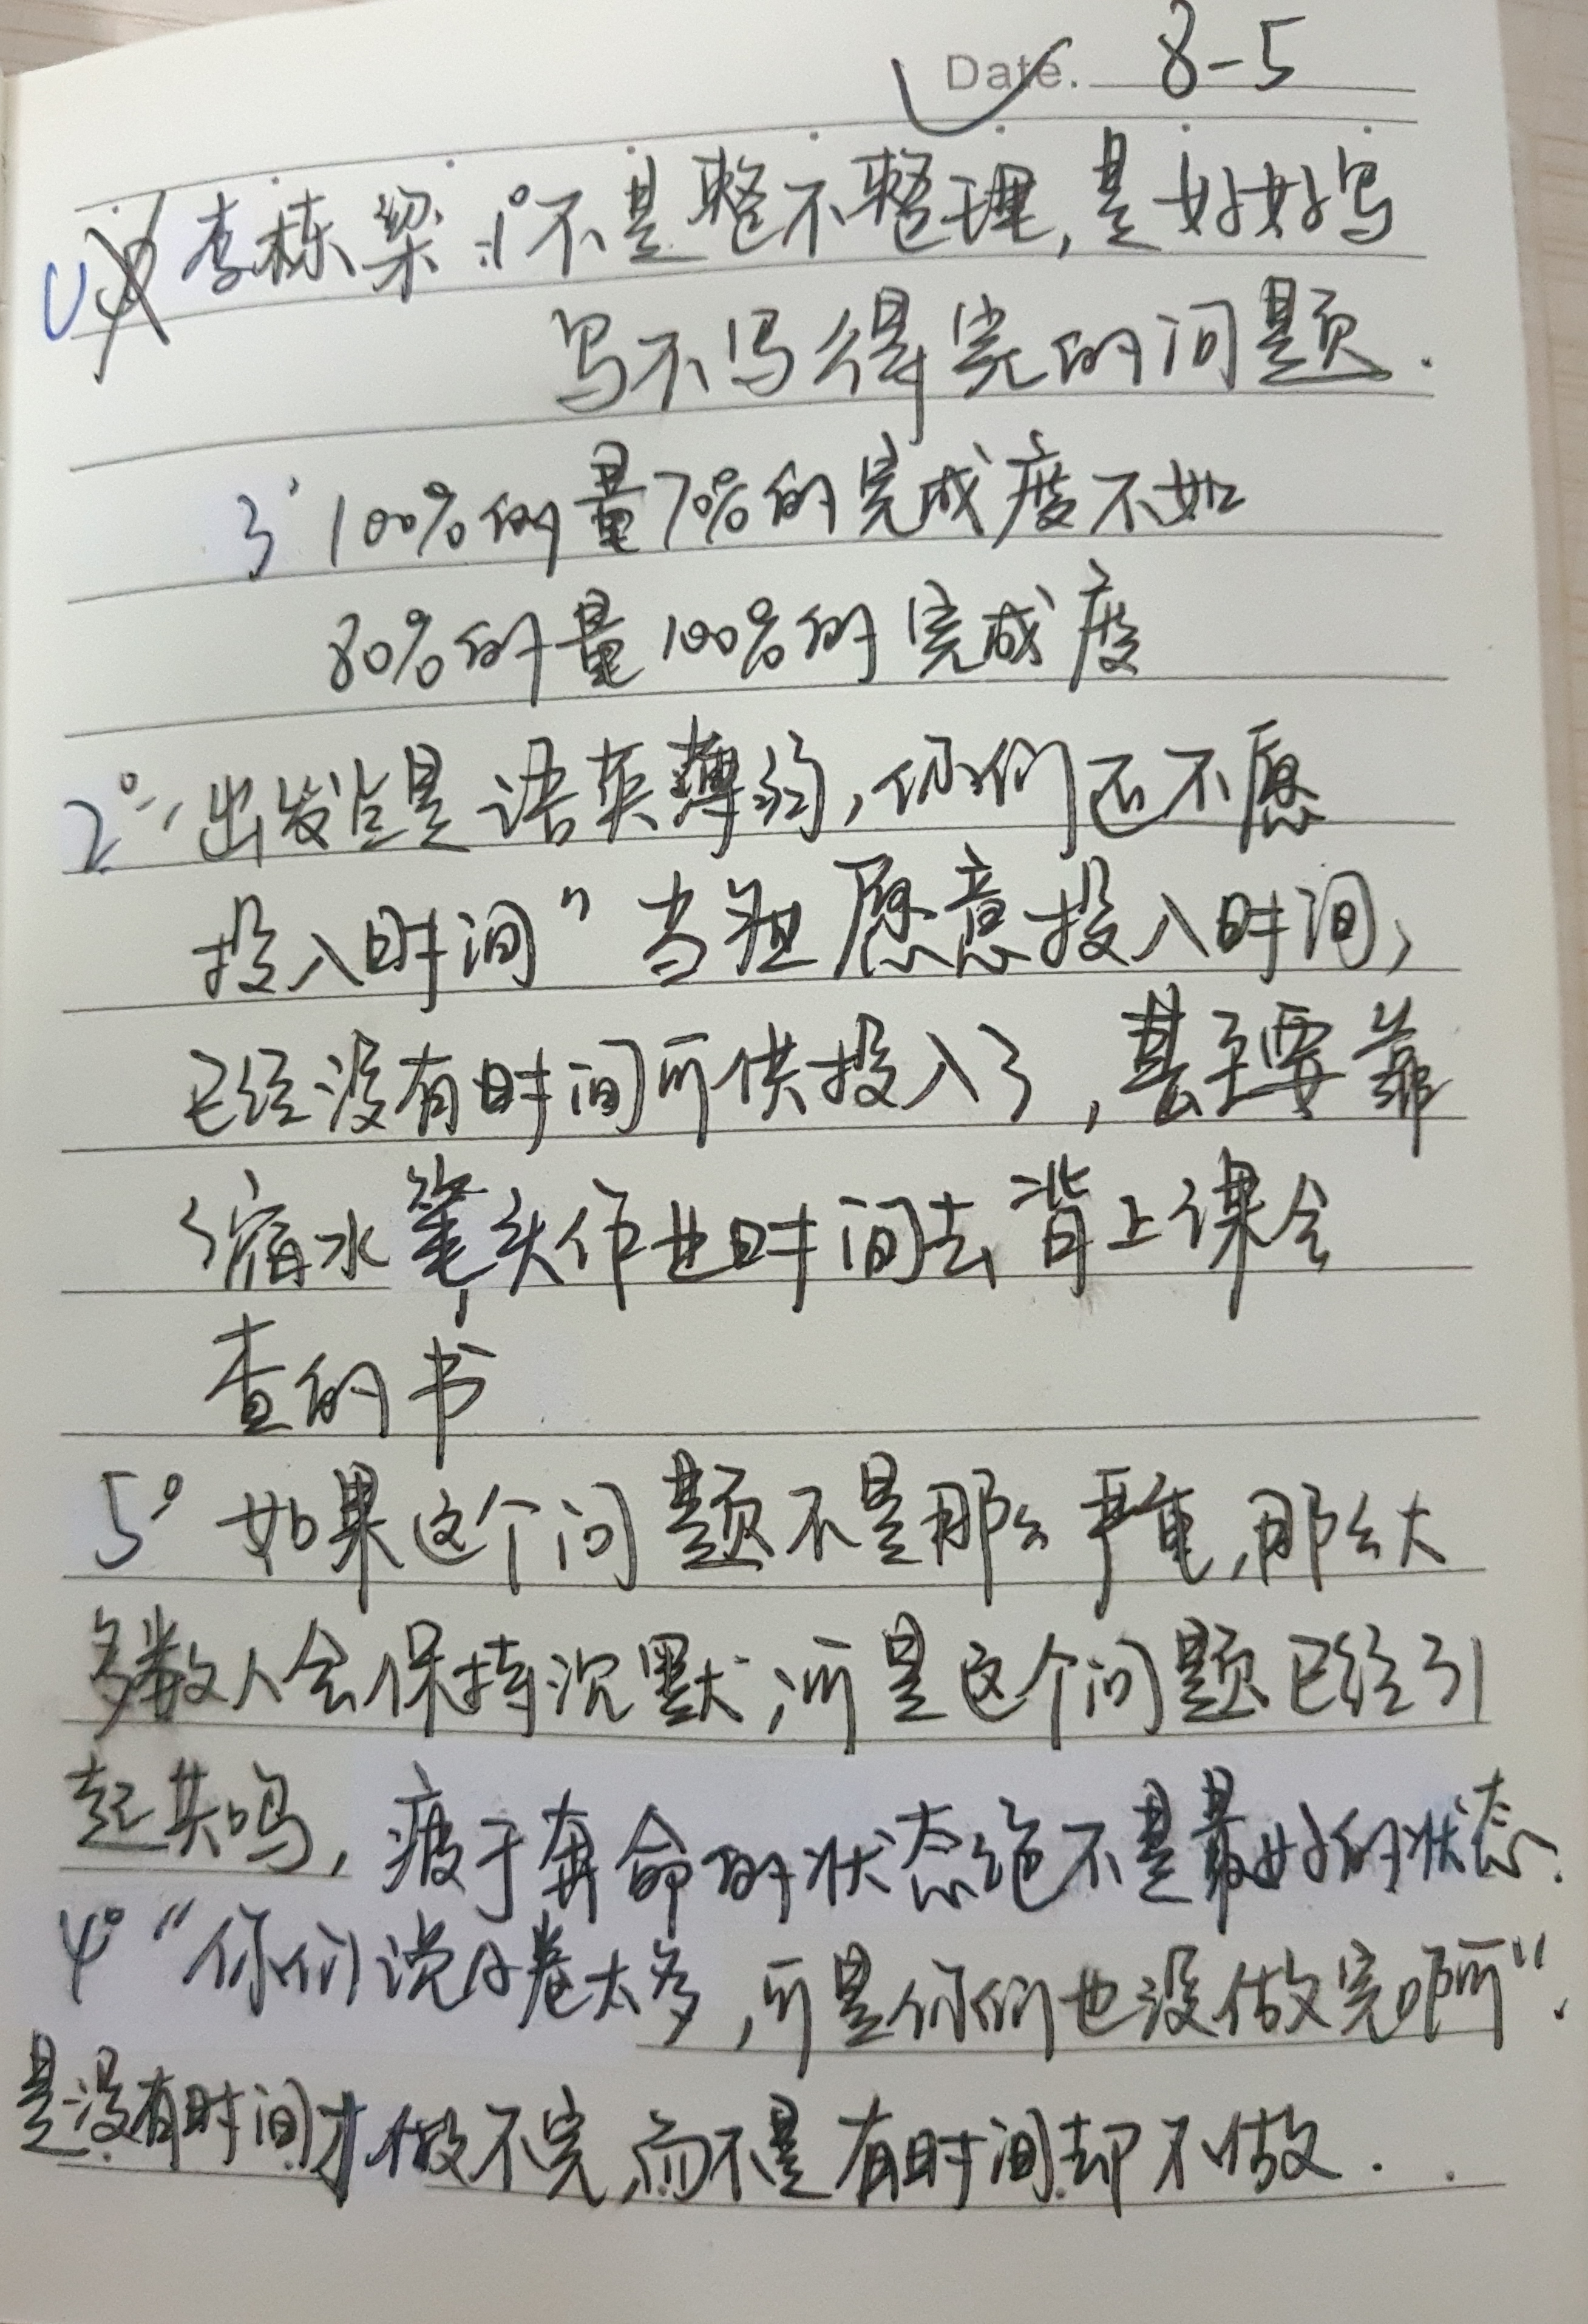 Date. 8-5
李栋梁:1°不是整不整理,是好好写
写不写得完的问题.
3°100%的量70%的完成度不如
80%的量100%的完成度
2°"出发点是语英薄弱,你们还不愿
投入时间"当想愿意投入时间,
已经没有时间可供投入了,甚至要靠
缩水笔头作业时间去背上课会
查的书
5°如果这个问题不是那么严重,那么大
多数人会保持沉默,可是这个问题已经引
起共鸣,疲于奔命的状态绝不是最好的状态.
4°"你们说小卷太多,可是你们也没做完啊".
是没有时间才做不完,而不是有时间却不做.